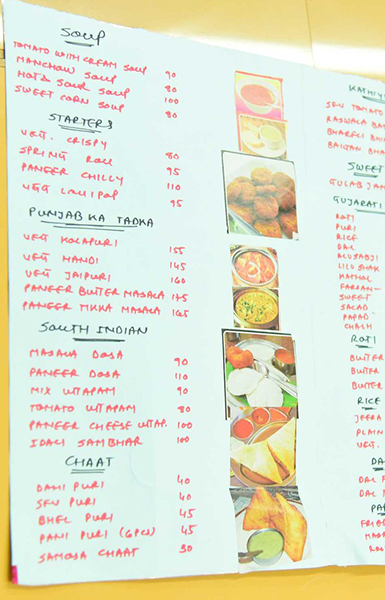 SOUP
TOMATO WITH CREAM SOUP 90
MANCHAW SOUP 80
HOT & SOUR SOUP 100
SWEET CORN SOUP 80
STARTERS
VEG. CRISPY
SPRING ROLL 80
PANEER CHILLY 95
VEG LOLLIPOP 110
95
PUNJAB KA TADKA
VEG KOLAPURI 155
VEG HANDI 145
VEG JAIPURI 160
PANEER BUTTER MASALA 175
PANEER TIKKA MASALA 165
SOUTH INDIAN
MASALA DOSA 90
PANEER DOSA 110
MIX UTTAPAM 90
TOMATO UTTAPAM 80
PANEER CHEESE UTTAP. 100
IDALI SAMBHAR 100
CHAAT
DAHI PURI 40
SEV PURI 40
BHEL PURI 45
PANI PURI (6PCS) 45
SAMOSA CHAAT 30
KATHIY
SEV TOMATO
RASWALA BA
BHAREli BHI
BAIGAN BHA
SWEET
GULAB JAM
GUJARATI
ROTI
PURI
RICE
DAL
ALUSABJI
LILU SHAK
KATHOL
FARSAN-
SWEET
SALAD
PAPAD
CHASH
ROTI
BUTTER
BUTTER
BUTTER
RICE
JEERA
PLAIN
VEG.
DA
DAL F
DAL
PA
FRIED
MASA
ROA